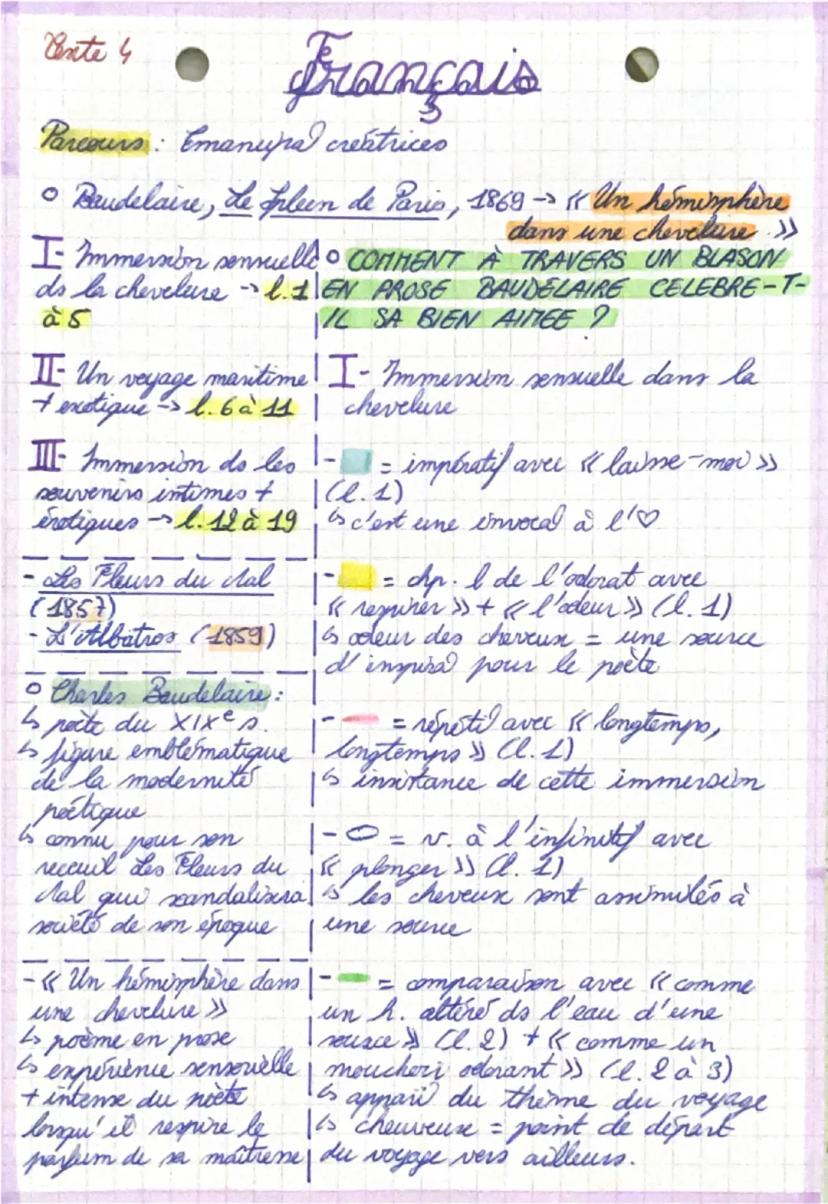 Texte 4
Français
Parcours : Emancipa° créatrices
o Baudelaire, Le Spleen de Paris, 1869 -> « Un hémisphère
dans une chevelure. »
I- Immersion sensuelle
ds la chevelure -> l.1
à 5
II- Un voyage maritime
+ exotique -> l. 6 à 11
III- Immersion ds les
souvenirs intimes +
érotiques -> l. 12 à 19
- Les Fleurs du Mal
(1857)
- L'Albatros (1859)
o Charles Baudelaire :
↳ poète du XIXe s.
↳ figure emblématique
de la modernité
poétique
↳ connu pour son
recueil Les Fleurs du
Mal qui scandalisera
société de son époque
- « Un hémisphère dans
une chevelure »
↳ poème en prose
↳ expérience sensorielle
+ intense du poète
lorsqu'il respire le
parfum de sa maîtresse
o COMMENT À TRAVERS UN BLASON
EN PROSE BAUDELAIRE CELEBRE-T-
IL SA BIEN AIMEE ?
I- Immersion sensuelle dans la
chevelure
- = impératif avec « laisse-moi »
(l. 1)
↳ c'est une invoca° à l'♡
- = chp. l de l'odorat avec
« respirer » + « l'odeur » (l. 1)
↳ odeur des cheveux = une source
d'inspira° pour le poète
- = répéti° avec « longtemps,
longtemps » (l. 1)
↳ insistance de cette immersion
- = v. à l'infinitif avec
« plonger » (l. 1)
↳ les cheveux sont assimilés à
une source
- = comparaison avec « comme
un h. altéré ds l'eau d'une
source » (l. 2) + « comme un
mouchoir odorant » (l. 2 à 3)
↳ appari° du thème du voyage
↳ cheuveux = point de départ
du voyage vers ailleurs.